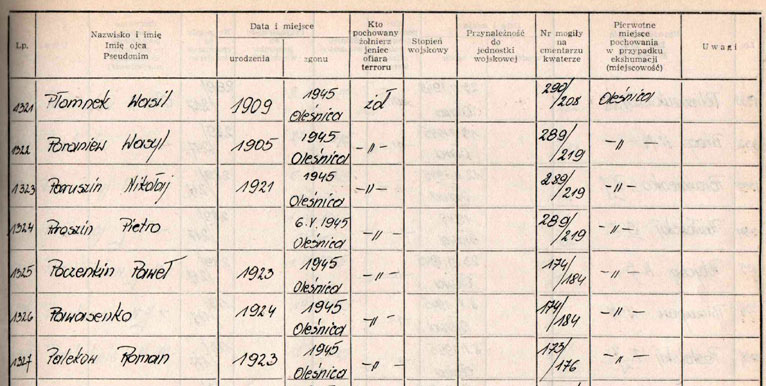 Lp. Nazwisko i imię Imię ojca Pseudonim Data i miejsce urodzenia zgonu Kto pochowany żołnierz jeniec ofiara terroru Stopień wojskowy Przynależność do jednostki wojskowej Nr mogiły na cmentarzu kwaterze Pierwotne miejsce pochowania w przypadku ekshumacji (miejscowość) Uwagi
1321 Płomnek Wasil 1909 1945 Oleśnica żoł 290/208 Oleśnica
1322 Poraniew Wasyl 1905 1945 Oleśnica -〃- 289/219 -〃-
1323 Paruszin Nikołaj 1921 1945 Oleśnica -〃- 289/219 -〃-
1324 Proszin Pietro 6.V.1945 Oleśnica -〃- 289/219 -〃-
1325 Poczenkin Paweł 1923 1945 Oleśnica -〃- 174/184 -〃-
1326 Pawasenko 1924 1945 Oleśnica -〃- 174/184 -〃-
1327 Polekow Roman 1923 1945 Oleśnica -〃- 173/176 -〃-